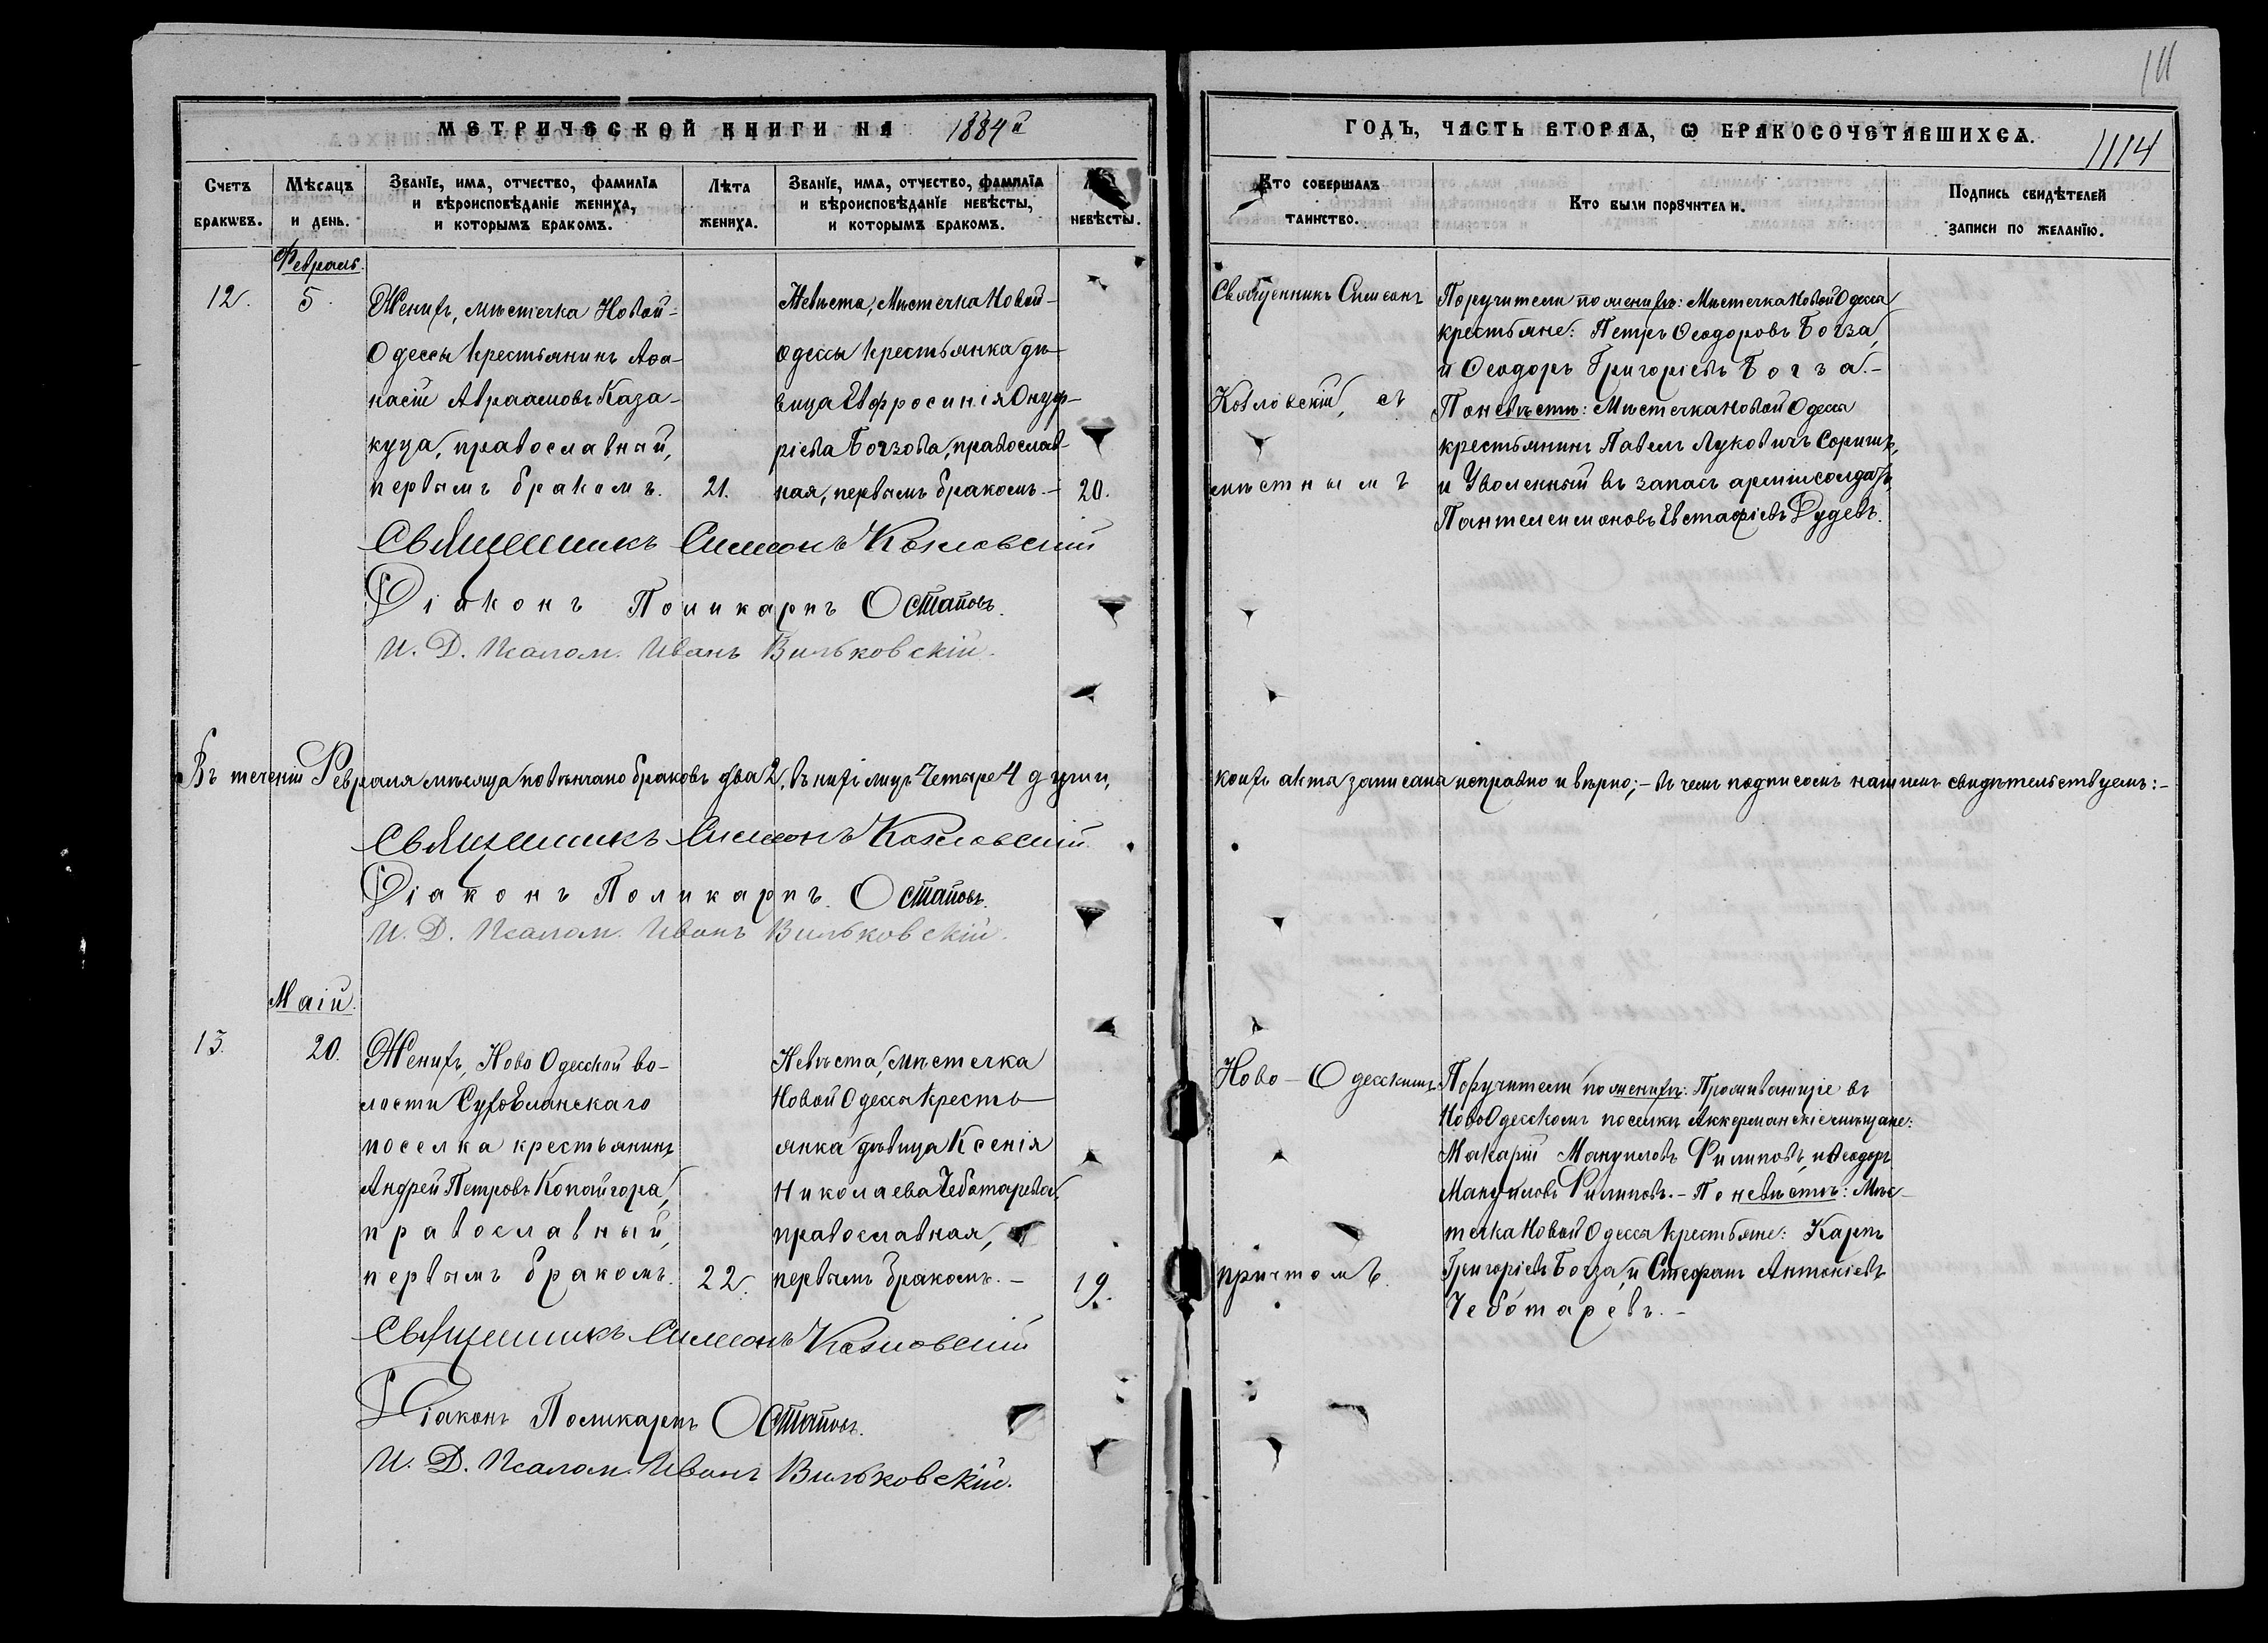 111
МЕТРИЧЕСКОЙ КНИГИ НА 1884й
ГОДЪ, ЧАСТЬ ВТОРАЯ, Ѡ БРАКОСОЧЕТАВШИХСѦ.
1114
Счетъ браковъ.
Мѣсяцъ и день.
Званїе, имѧ, отчество, фамилїѧ
и вѣроисповѣданїе жениха,
и которымъ бракомъ.
Лѣта жениха.
Званїе, имѧ, отчество, фамилїѧ
и вѣроисповѣданїе невѣсты,
и которымъ бракомъ.
невѣсты.
Кто совершалъ таинство.
Кто были поручители.
Подпись свидѣтелей
записи по желанїю.
Февраль.
12.
5.
Женихъ, мѣстечка Новой-
Одессы крестьянинъ Аѳа-
насій Авраамовъ Каза-
куца, православный,
первымъ бракомъ.
21.
Невѣста, Мѣстечка Новой-
Одессы крестьянка дѣ-
вица Евфросинія Онуф-
ріева Богзова, православ-
ная, первымъ бракомъ.-
20.
Священникъ Симеонъ
Козловскій, съ
мѣстнымъ
Поручители по женихѣ: Мѣстечка Новой Одесса
крестьяне: Петръ Ѳеодоровъ Богза,
и Ѳеодоръ Григоріевъ Богза.-
По невѣстѣ: Мѣстечка Новой Одесса
крестьянинъ Павелъ Луковичъ
и Уволенный въ запасъ арміи солдатъ,
Пантелеимоновъ Евстафіевъ Дудевъ.
Священникъ Симеонъ Козловскій
Діаконъ Поликарпъ Остаповъ.
И. Д. Псалом. Иванъ Вильковскій.
Въ теченіи Февраля мѣсяца повѣнчано браковъ два 2, въ нихъ лицъ Четыре 4 души,
коихъ акта записана исправно и вѣрно;- въ чемъ подписомъ нашимъ свидѣтельствуемъ:-
Священникъ Симеонъ Козловскій.
Діаконъ Поликарпъ Остаповъ.
И. Д. Псалом. Иванъ Вильковскій.
Маій.
13.
20.
Женихъ, Ново Одесской во-
лости Сухоеланскаго
поселка крестьянинъ
Андрей Петровъ Копайгора,
православный,
первымъ бракомъ.
22.
Невѣста, мѣстечка
Новой Одесса кресть-
янка дѣвица Ксенія
Николаева Чеботарева,
православная,
первымъ бракомъ.-
19.
Ново-Одесскимъ
причтомъ.
Поручители по женихѣ: Проживающіе въ
НовоОдесскомъ поселкѣ Аккерманскіе мѣщане:
Макарій Мануиловъ Филиповъ, и Ѳеодоръ
Мануиловъ Филиповъ.- По невѣстѣ: Мѣс-
течка Новой Одесса крестьяне: Карпъ
Григоріевъ Богза, и Стефанъ Антоніевъ
Чеботаревъ.-
Священникъ Симеонъ Козловскій
Діаконъ Поликарпъ Остаповъ.
И. Д. Псалом. Иванъ Вильковскій.